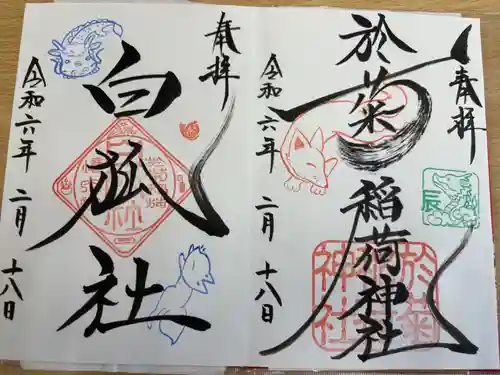 奉拝
於菊稲荷神社
令和六年 二月 十八日
辰
於菊
稲荷
神社
奉拝
白狐社
令和六年 二月 十八日